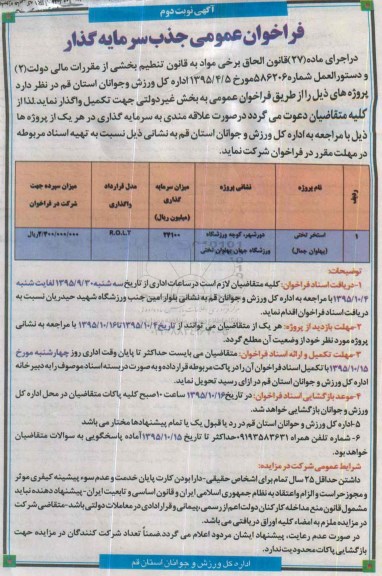 آگهی نوبت دوم
فراخوان عمومی جذب سرمایه گذار
دراجرای ماده(۲۷)قانون الحاق برخی مواد به قانون تنظیم بخشی از مقررات مالی دولت(۲)
و دستورالعمل شماره۵۸۶۲۰۶مورخ ۱۳۹۵/۴/۵ اداره کل ورزش وجوانان استان قم در نظر دارد
پروژه های ذیل رااز طریق فراخوان عمومی به بخش غیر دولتی جهت تکمیل واگذار نماید لذا از
کلیه متقاضیان دعوت می گردد درصورت علاقه مندی به سرمایه گذاری در هر یک از پروژه ها
ذیل با مراجعه به اداره کل ورزش و جوانان استان قم به نشانی ذیل نسبت به تهیه اسناد مربوطه
در مهلت مقرر در فراخوان شرکت نماید.
ردیف نام پروژه نشانی پروژه میزان سرمایه گذاری (میلیون ریال) مدل قرارداد واگذاری میزان سپرده جهت شرکت در فراخوان
۱ استخر تختی (پهلوان جمال) دورشهر، کوچه ورزشگاه ورزشگاه جهان پهلوان تختی ۲۴۱۰۰ R.O.L.T
توضیحات:
۱-دریافت اسناد فراخوان: کلیه متقاضیان لازم است درساعات اداری از تاریخ سه شنبه۱۳۹۵/۹/۳۰ لغایت شنبه
۱۳۹۵/۱۰/۴ با مراجعه به اداره کل ورزش و جوانان قم به نشانی بلوار امین جنب ورزشگاه شهید حیدریان نسبت به
دریافت اسناد فراخوان اقدام نماید.
۲-مهلت بازدید از پروژه: هر یک از متقاضیان می توانند از تاریخ ۱۳۹۵/۱۰/۴تا۱۳۹۵/۱۰/۱۶ با مراجعه به نشانی
پروژه مورد نظر خود از وضعیت آن مطلع گردد.
۳-مهلت تکمیل و ارائه اسناد فراخوان: متقاضیان می بایست حداکثر تا پایان وقت اداری روز چهارشنبه مورخ
۱۳۹۵/۱۰/۱۵ با تکمیل اسناد فراخوان آن را در پاکت مربوطه قرارداده و به صورت دربسته اسناد موصوف را به دبیر خانه
اداره کل ورزش و جوانان استان قم در ازای رسید تحویل نماید.
۴-موعد بازگشایی اسناد فراخوان: در تاریخ۱۳۹۵/۱۰/۱۶ ساعت ۱۰صبح کلیه پاکات متقاضیان در محل اداره کل
ورزش و جوانان بازگشایی خواهد شد.
۵-اداره کل ورزش و جوانان استان قم در رد یا قبول یک یا تمام پیشنهادها مختار می باشد
۶- شماره تلفن همراه ۰۹۱۹۳۵۸۳۶۳۱حداکثر تا تاریخ ۱۳۹۵/۱۰/۱۵آماده پاسخگویی به سوالات متقاضیان
خواهد بود.
شرایط عمومی شرکت در مزایده:
داشتن حداقل ۲۵ سال تمام برای اشخاص حقیقی-دارا بودن کارت پایان خدمت و عدم سوء پیشینه کیفری موثر
و مجوز حراست و الزام واعتقاد به نظام جمهوری اسلامی ایران و قانون اساسی و تابعیت ایران- پیشنهاد دهنده نباید
مشمول قانون منع مداخله کارکنان دولت اعم از رسمی،پیمانی و قراردادی در معاملات دولتی باشد-متقاضی شرکت
در مزایده ملزم به امضاء کلیه اوراق دریافتی می باشد.
در صورت عدم رعایت، پیشنهاد ایشان مردود اعلام می گردد.ضمناً تعداد شرکت کنندگان در مزایده جهت
بازگشایی پاکات محدودیت ندارد.
اداره کل ورزش و جوانان استان قم